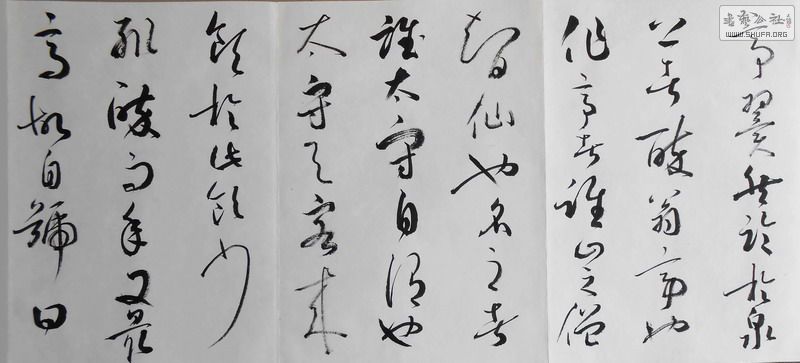 亭翼然臨於泉
上者醉翁亭也
作亭者誰山之僧
智仙也名之者
誰太守自謂也
太守与客来
飲於此飲少
輒醉而年又最
高故自號曰
書藝公社
WWW.SHUFA.ORG